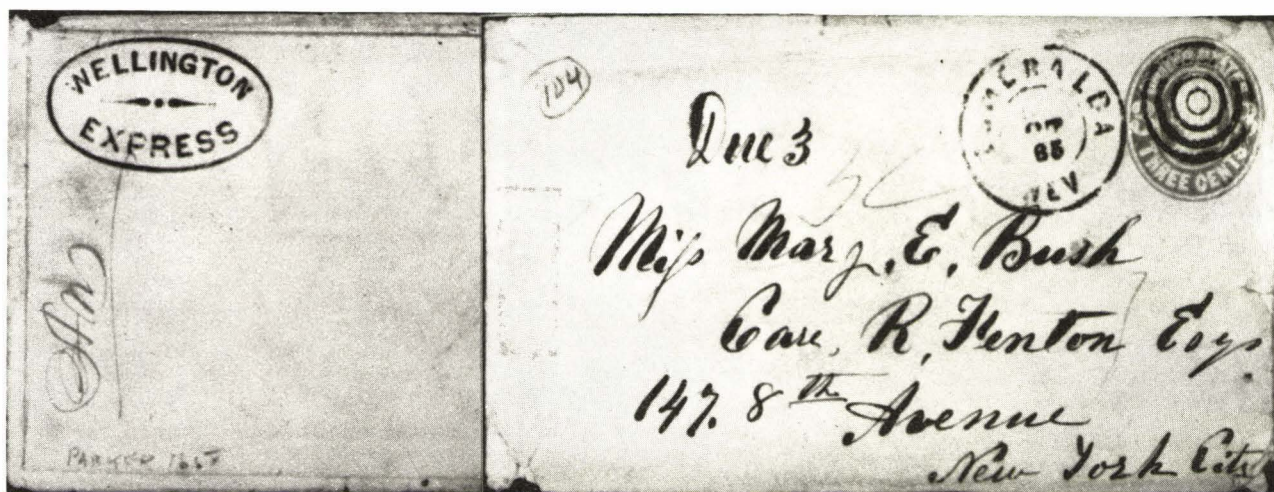 WELLINGTON
EXPRESS
104
Due 3
ESMERALDA
OCT
65
NEV
THREE CENTS
Miss Mary, E, Bush
Care, R, Fenton Esqr
147. 8th Avenue
New York City